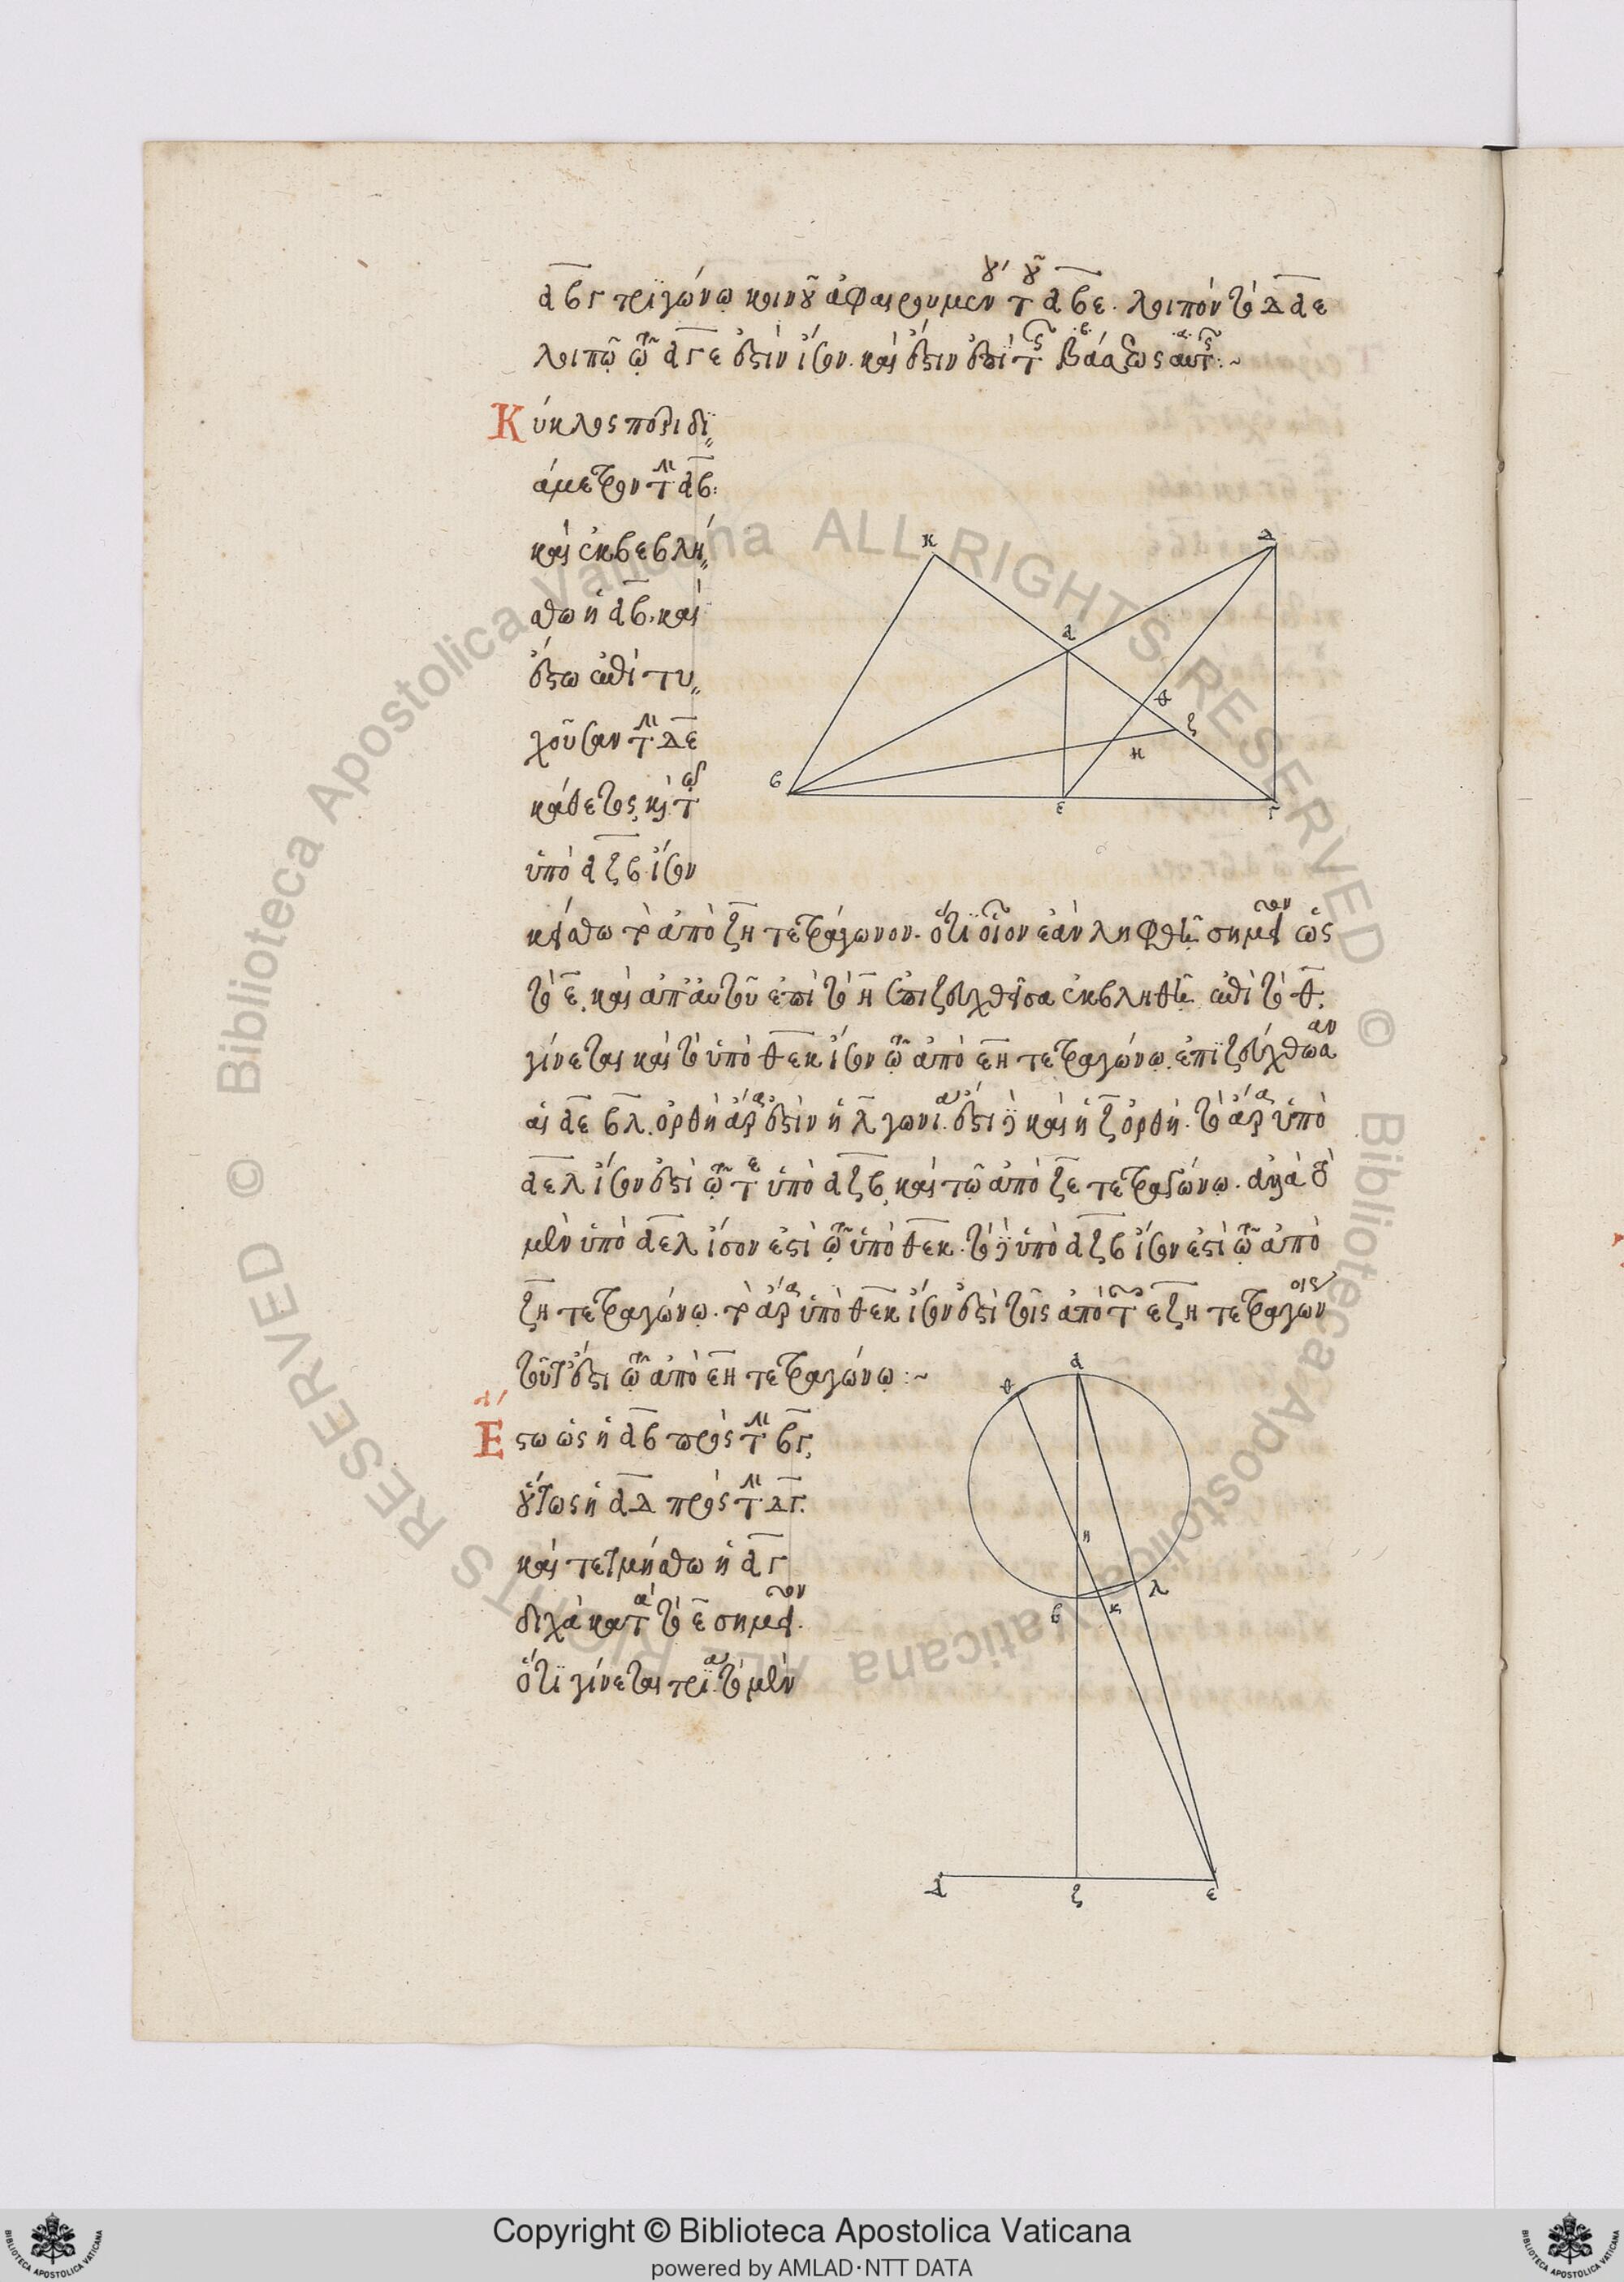 ΑΒΓ τριγώνῳ κοινοῦ ἀφαιρουμένου τοῦ ΑΒΕ. λοιπὸν τὸ ΔΑΕ
λοιπῷ τῷ ΑΓΕ ἐστὶν ἴσον. καὶ ἔστιν ἐπὶ τῆς βάσεως
Κύκλος περὶ δι
άμετρον τὴν ΑΒ:
καὶ ἐκβεβλή
σθω ἡ ΑΒ. καὶ
ἔστω ἐπὶ τυ
χοῦσαν τὴν ΔΕ
κάθετος, καὶ τῷ
ὑπὸ ΑΖΒ ἴσον
κείσθω τὸ ἀπὸ ΖΗ τετράγωνον. ὅτι οἷον ἐὰν ληφθῇ σημεῖον ὡς
τὸ Ε, καὶ ἀπ' αὐτοῦ ἐπὶ τὸ Η ἐπιζευχθεῖσα ἐκβληθῇ ἐπὶ τὸ Θ.
γίνεται καὶ τὸ ὑπὸ ΘΕΚ ἴσον τῷ ἀπὸ ΕΗ τετραγώνῳ. ἐπιζεύχθωσαν
αἱ ΑΕ ΒΛ. ὀρθὴ ἄρα ἐστὶν ἡ Λ γωνία. ἔστι δὲ καὶ ἡ Ζ ὀρθή. τὸ ἄρα ὑπὸ
ΑΕΛ ἴσον ἐστὶ τῷ τε ὑπὸ ΑΖΒ, καὶ τῷ ἀπὸ ΖΕ τετραγώνῳ. ἀλλὰ τὸ
μὲν ὑπὸ ΑΕΛ ἴσον ἐστὶ τῷ ὑπὸ ΘΕΚ. τὸ δὲ ὑπὸ ΑΖΒ ἴσον ἐστὶ τῷ ἀπὸ
ΖΗ τετραγώνῳ. τὸ ἄρα ὑπὸ ΘΕΚ ἴσον ἐστὶ τοῖς ἀπὸ τῶν ΕΖΗ τετραγώνοις
τουτέστι τῷ ἀπὸ ΕΗ τετραγώνῳ :~
Εστω ὡς ἡ ΑΒ πρὸς τὴν ΒΓ,
οὕτως ἡ ΑΔ πρὸς τὴν ΔΓ.
καὶ τετμήσθω ἡ ΑΓ
δίχα κατὰ τὸ Ε σημεῖον.
ὅτι γίνεται τρία τὸ μὲν
Κ
Δ
Α
Θ
Ζ
Η
Β
Ε
Γ
Α
Θ
Η
Λ
Β
Κ
Δ
Ζ
Ε
Biblioteca Apostolica Vaticana ALL RIGHTS RESERVED ©
Biblioteca Apostolica Vaticana ALL RIGHTS RESERVED ©
Copyright © Biblioteca Apostolica Vaticana
powered by AMLAD·NTT DATA
BIBLIOTECA APOSTOLICA VATICANA
BIBLIOTECA APOSTOLICA VATICANA